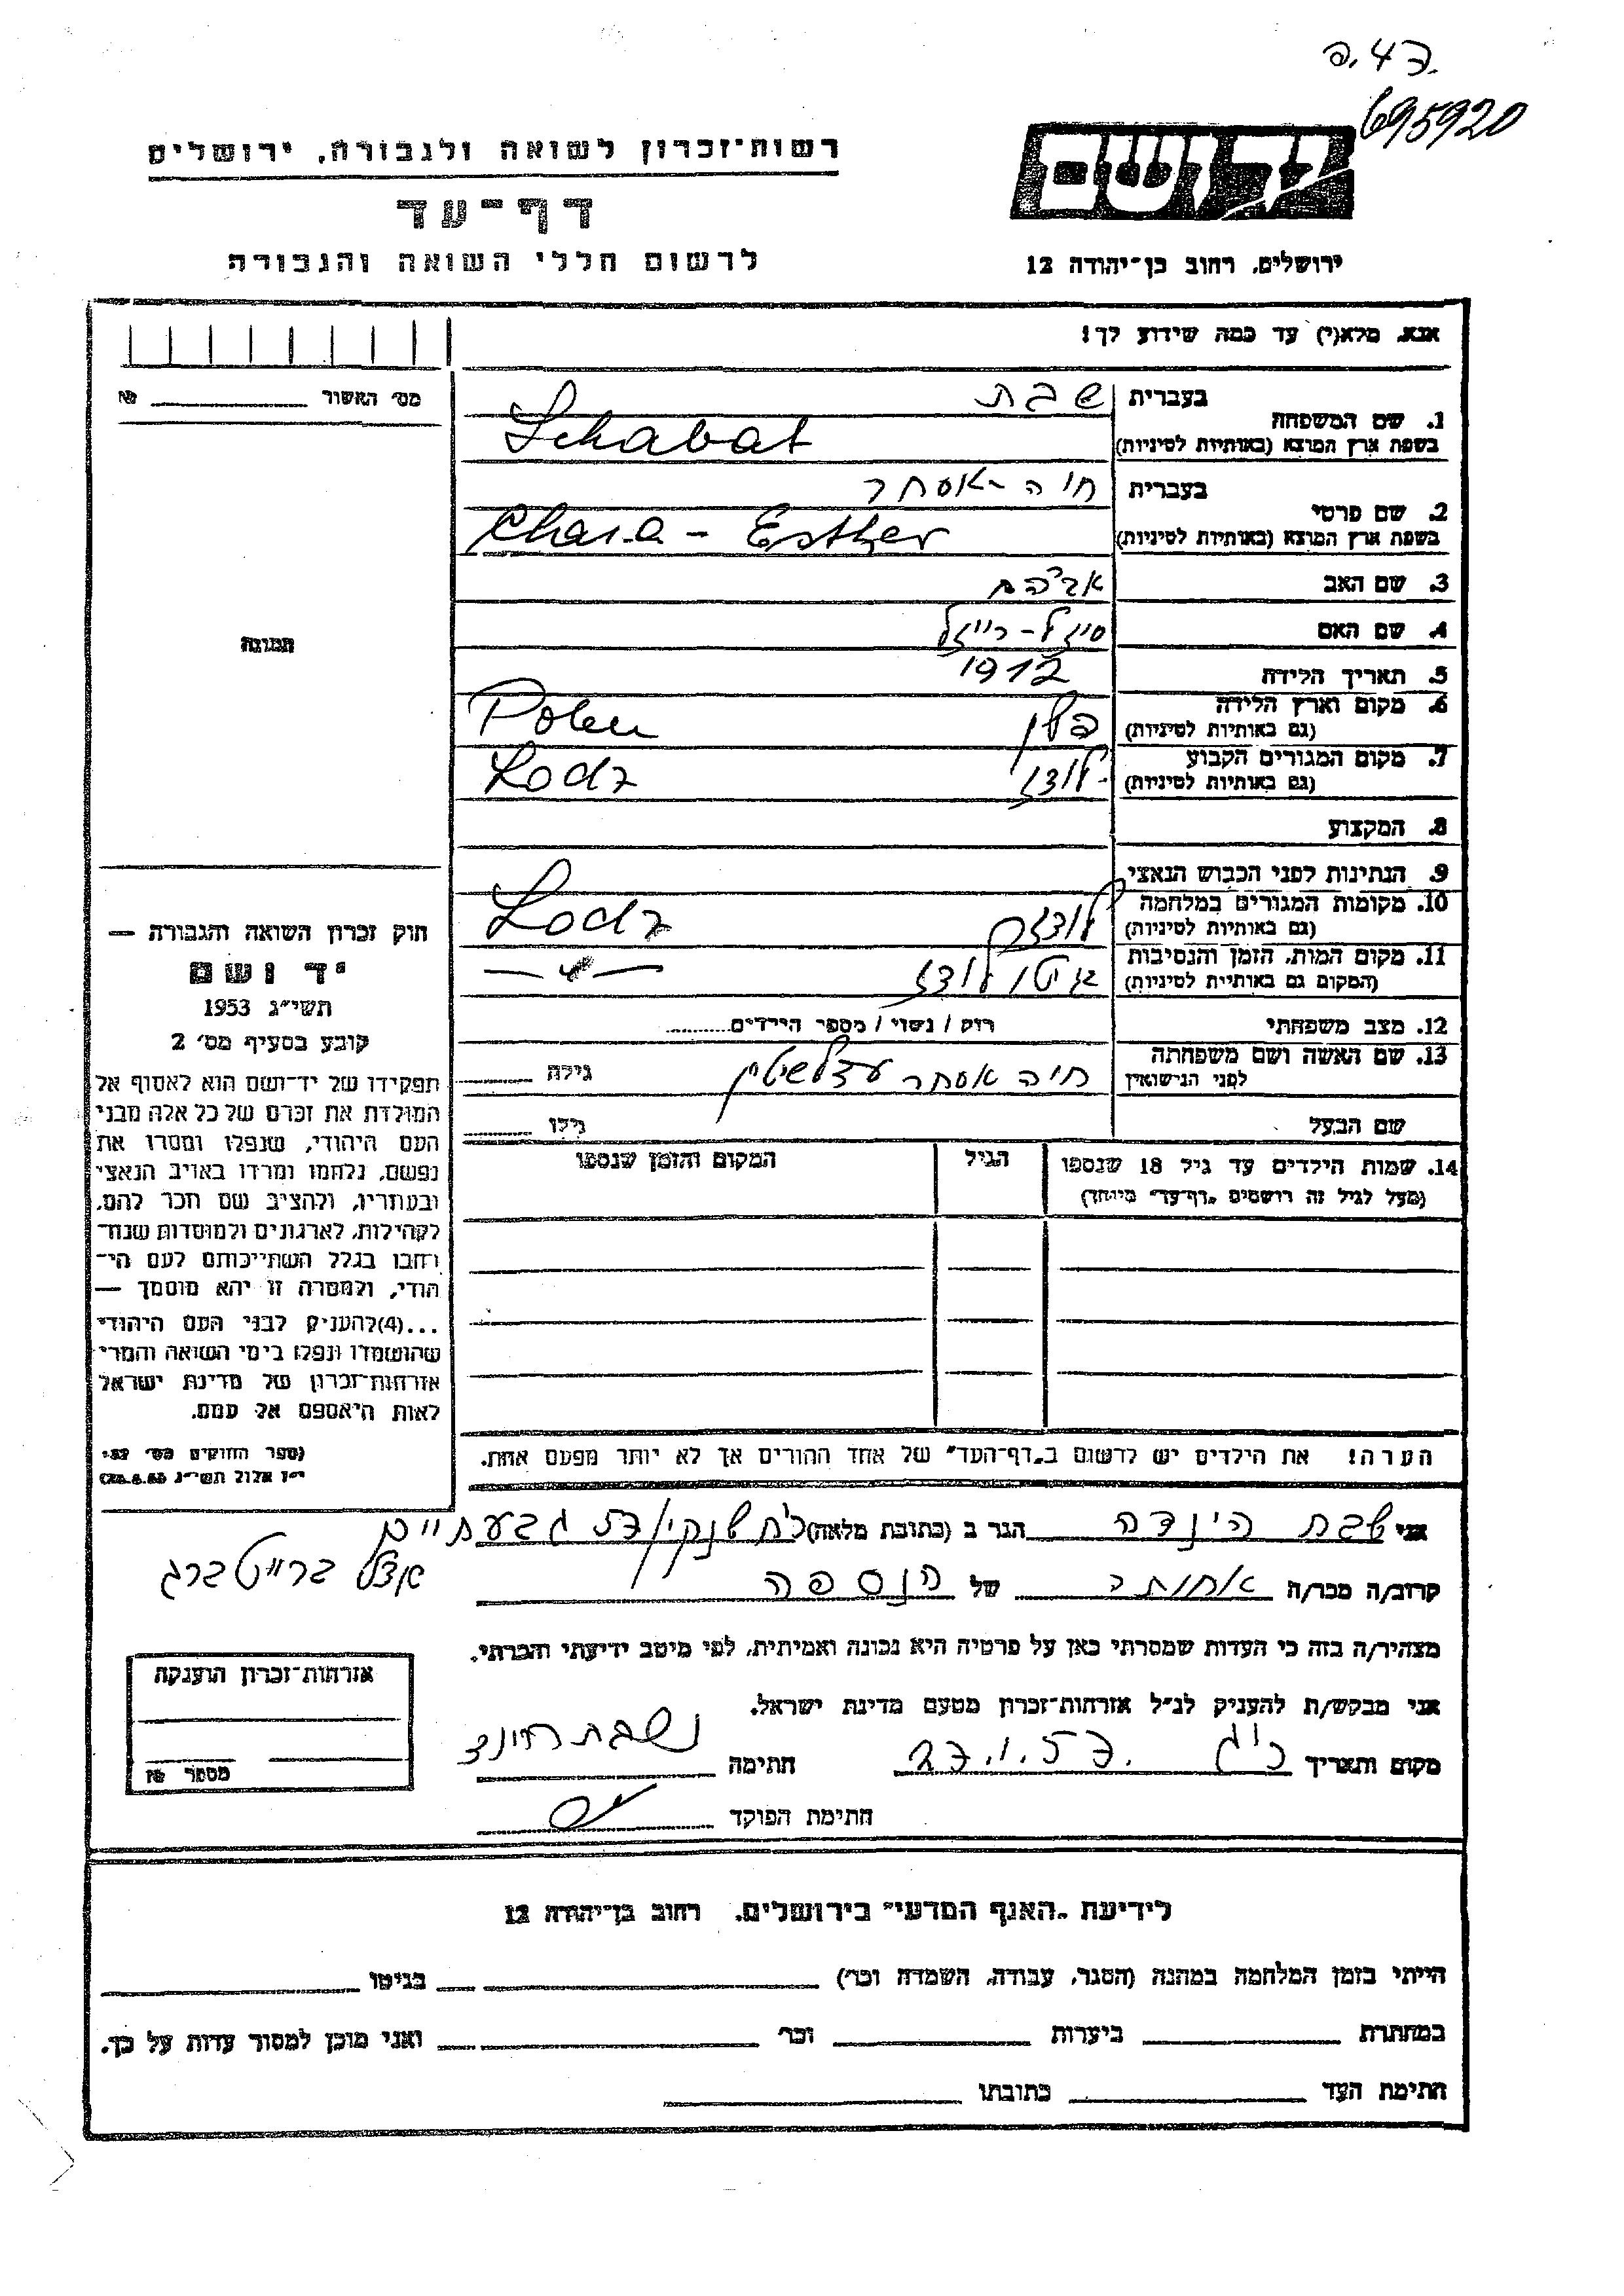 ד.47
695920
רשות־זכרון לשואה ולגבורה, ירושלים
דף־עד
לרשום חללי השואה והגבורה
יד ושם
ירושלים, רחוב בן־יהודה 12
אנא, מלא(י) עד כמה שידוע לך!
מס׳ האשור №
1. שם המשפחה
בעברית שבת
בשפת ארץ המוצא (באותיות לטיניות) Schabat
2. שם פרטי
בעברית חיה-אסתר
בשפת ארץ המוצא (באותיות לטיניות) Chaia-Esther
3. שם האב אברהם
4. שם האם רייזל
5. תאריך הלידה 1912
6. מקום וארץ הלידה (גם באותיות לטיניות) פולין Polen
7. מקום המגורים הקבוע (גם באותיות לטיניות) לודז Lodz
8. המקצוע
9. הנתינות לפני הכבוש הנאצי
10. מקומות המגורים במלחמה (גם באותיות לטיניות) לודז Lodz
11. מקום המות, הזמן והנסיבות (המקום גם באותיות לטיניות) גיטו לודז — " —
12. מצב משפחתי רוק / נשוי / מספר הילדים
13. שם האשה ושם משפחתה לפני הנישואין חיה אסתר גילה
שם הבעל גילו
14. שמות הילדים עד גיל 18 שנספו (מעל לגיל זה רושמים „דף־עד״ מיוחד)
הגיל
המקום והזמן שנספו
הערה! את הילדים יש לרשום ב„דף־העד״ של אחד ההורים אך לא יותר מפעם אחת.
תמונה
חוק זכרון השואה והגבורה —
יד ושם
תשי״ג 1953
קובע בסעיף מס׳ 2
תפקידו של יד־ושם הוא לאסוף אל
המולדת את זכרם של כל אלה מבני
העם היהודי, שנפלו ומסרו את
נפשם, נלחמו ומרדו באויב הנאצי
ובעוזריו, ולהציב שם וזכר להם,
לקהילות, לארגונים ולמוסדות שנח־
רבו בגלל השתייכותם לעם הי־
הודי, ולמטרה זו יהא מוסמך —
...(4)להעניק לבני העם היהודי
שהושמדו ונפלו בימי השואה והמרי
אזרחות־זכרון של מדינת ישראל
לאות היאספם אל עמם.
(ספר החוקים מס׳ 132
י״ז אלול תשי״ג 28.8.53)
אני שבת הינדה הגר ב (כתובת מלאה) שנקין 57 גבעתיים
אצל ברייטברג
קרוב/ה מכר/ה אחותה של הנספה
מצהיר/ה בזה כי העדות שמסרתי כאן על פרטיה היא נכונה ואמיתית, לפי מיטב ידיעתי והכרתי.
אני מבקש/ת להעניק לנ״ל אזרחות־זכרון מטעם מדינת ישראל.
מקום ותאריך 27.1.57 חתימה שבת הינדה
חתימת הפוקד
אזרחות־זכרון הוענקה
מספר №
לידיעת „האגף המדעי״ בירושלים, רחוב בן־יהודה 12
הייתי בזמן המלחמה במחנה (הסגר, עבודה, השמדה וכו׳) בגיטו
במחתרת ביערות וכו׳ ואני מוכן למסור עדות על כך.
חתימת העד כתובתו